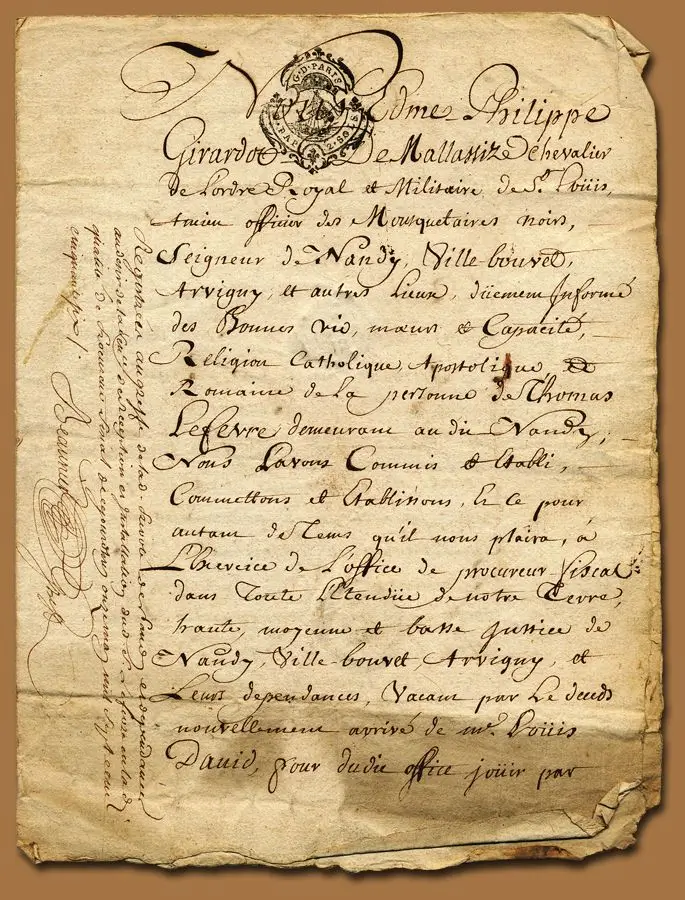 Nous Edme Philippe
Girardot De Mallassize Chevalier
de Lordre Royal et Militaire de St. Loüis,
officier des Mousquetaires noirs,
Seigneur de Nandy, Ville-bouvet,
Arvigny, et autres Lieux, düement Informé
des Bonnes vie, mœurs et Capacité,
Religion Catholique, Apostolique, et
Romaine de la personne de Thomas
Lefevre demeurant au dit Nandy,
Nous Lavons Commis et Etabli,
Commettons et Etablissons, Et ce pour
autant de Tems qu'il nous plaira, à
L'Exercice de L'office de procureur fiscal
dans Toute L'Etendüe de notre Terre,
haute, moyenne et basse Justice de
Nandy, Ville-bouvet, Arvigny, et
Leurs dependances, Vacant par Le deceds
nouvellement arrivé de me. Loüis
David, pour dudit office joüir par
G. D. PARIS
2. SOLS
Registrée au greffe de la de Nandy et dependances
au desir de la de Reception et Installation dud. S. Lefevre en lad.
de Procureur fiscal de cejourdhuy onze mai mil sept cent
cinquante six